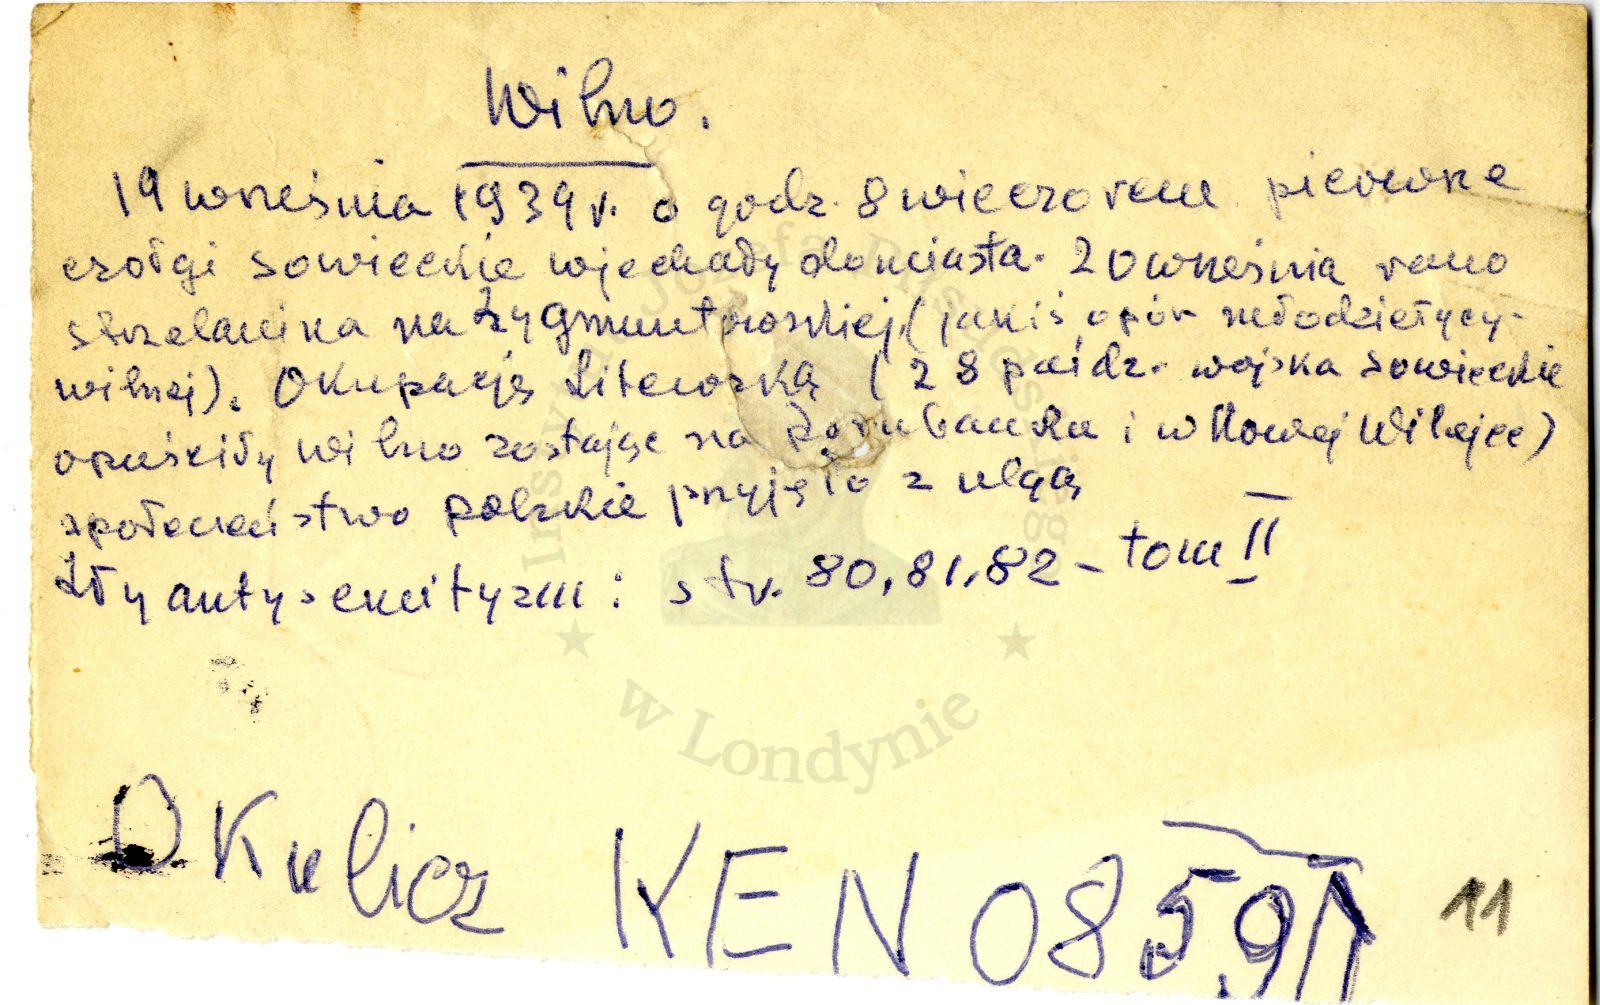 Wilno.
19 września 1939 r. o godz. 8 wieczorem pierwsze
czołgi sowieckie wjechały do miasta. 20 września rano
strzelanina na Zygmuntowskiej (jakiś opór młodzieży cy-
wilnej). Okupację Litewską (28 paźdz. wojska sowieckie
opuściły Wilno zostając na Porubanku i w Nowej Wilejce)
społeczeństwo polskie przyjęło z ulgą
antysemityzm: str. 80, 81, 82 - tom II
Instytut Józefa Piłsudskiego
w Londynie
Okulicz KEN 085
11